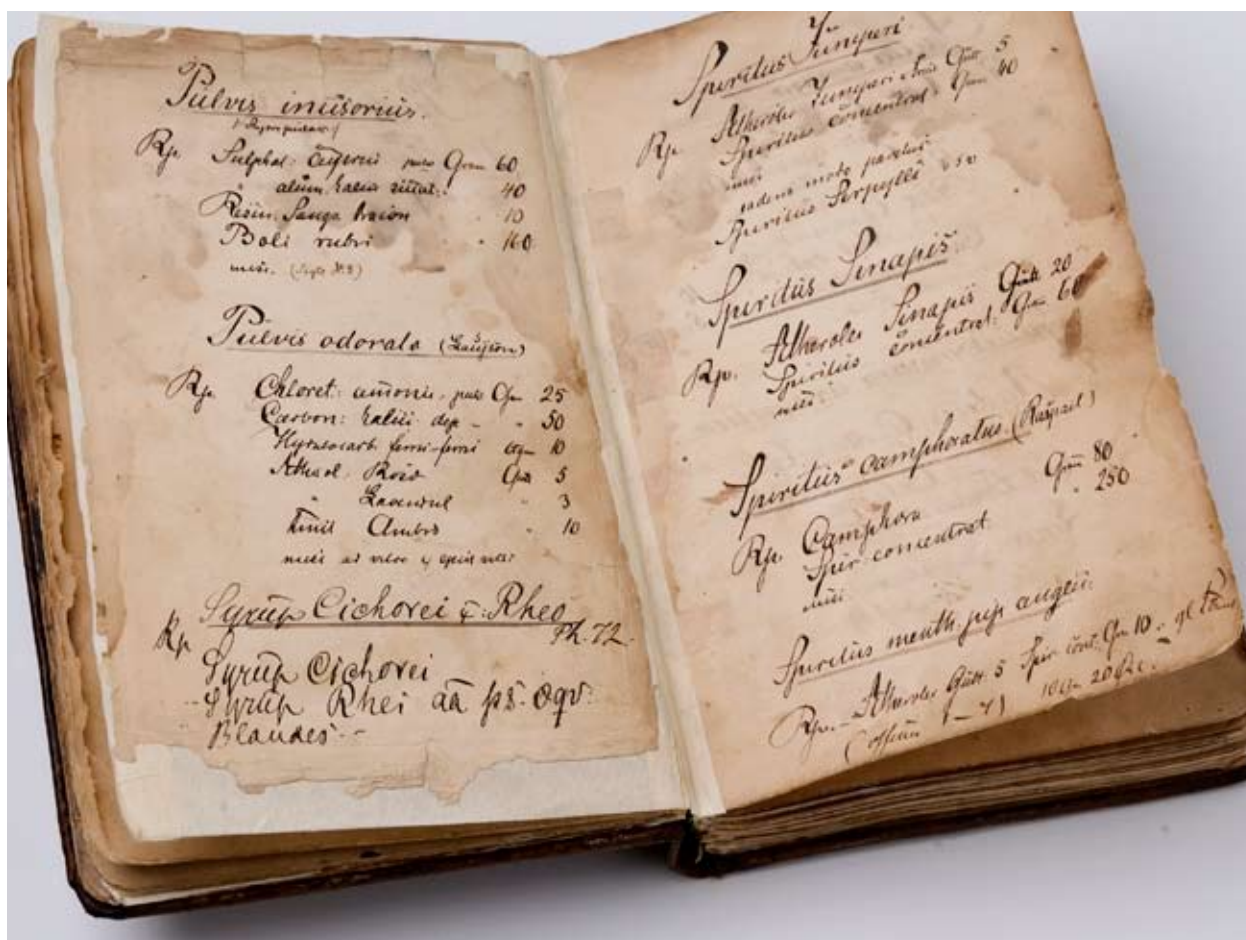 Pulvis incisorius.
Rp. Sulphat: puls Gram 60
alum, kalico 40
Resin. Sangu dracon " 10
Boli rubri " " 160
misc.
Pulvis odorata
Rp. Chloret: amonic. pulv Gm 25
Carbon: kalici dep - " 50
ferri-ferri 10
Atherol. Gutt 5
Lavandul " 3
Ambro " 10
misc ad
Syrup Cichorei c̄: Rheo
Ph. 72.
Rp
Syrup Cichorei
Syrup Rhei aa ps. æqv:
Blandes.
Spiritus Juniperi.
Rp. Atherolei Juniperi Gutt 5
Spiritus concentrat. Gram 40
misc
eadem modo paratus
Spiritus Serpylli
Spiritus Sinapis
Rp. Atherolei Sinapis Gutt 20
Spiritus concentrat: Gm 60
misc:
Spiritus camphoratus
Rp. Camphora Gram 80
Spir concentrat. " 250
misc
Spiritus menth. pip anglic:
Rp. Atherolei Gutt. 5 Spir conc. Gm 10